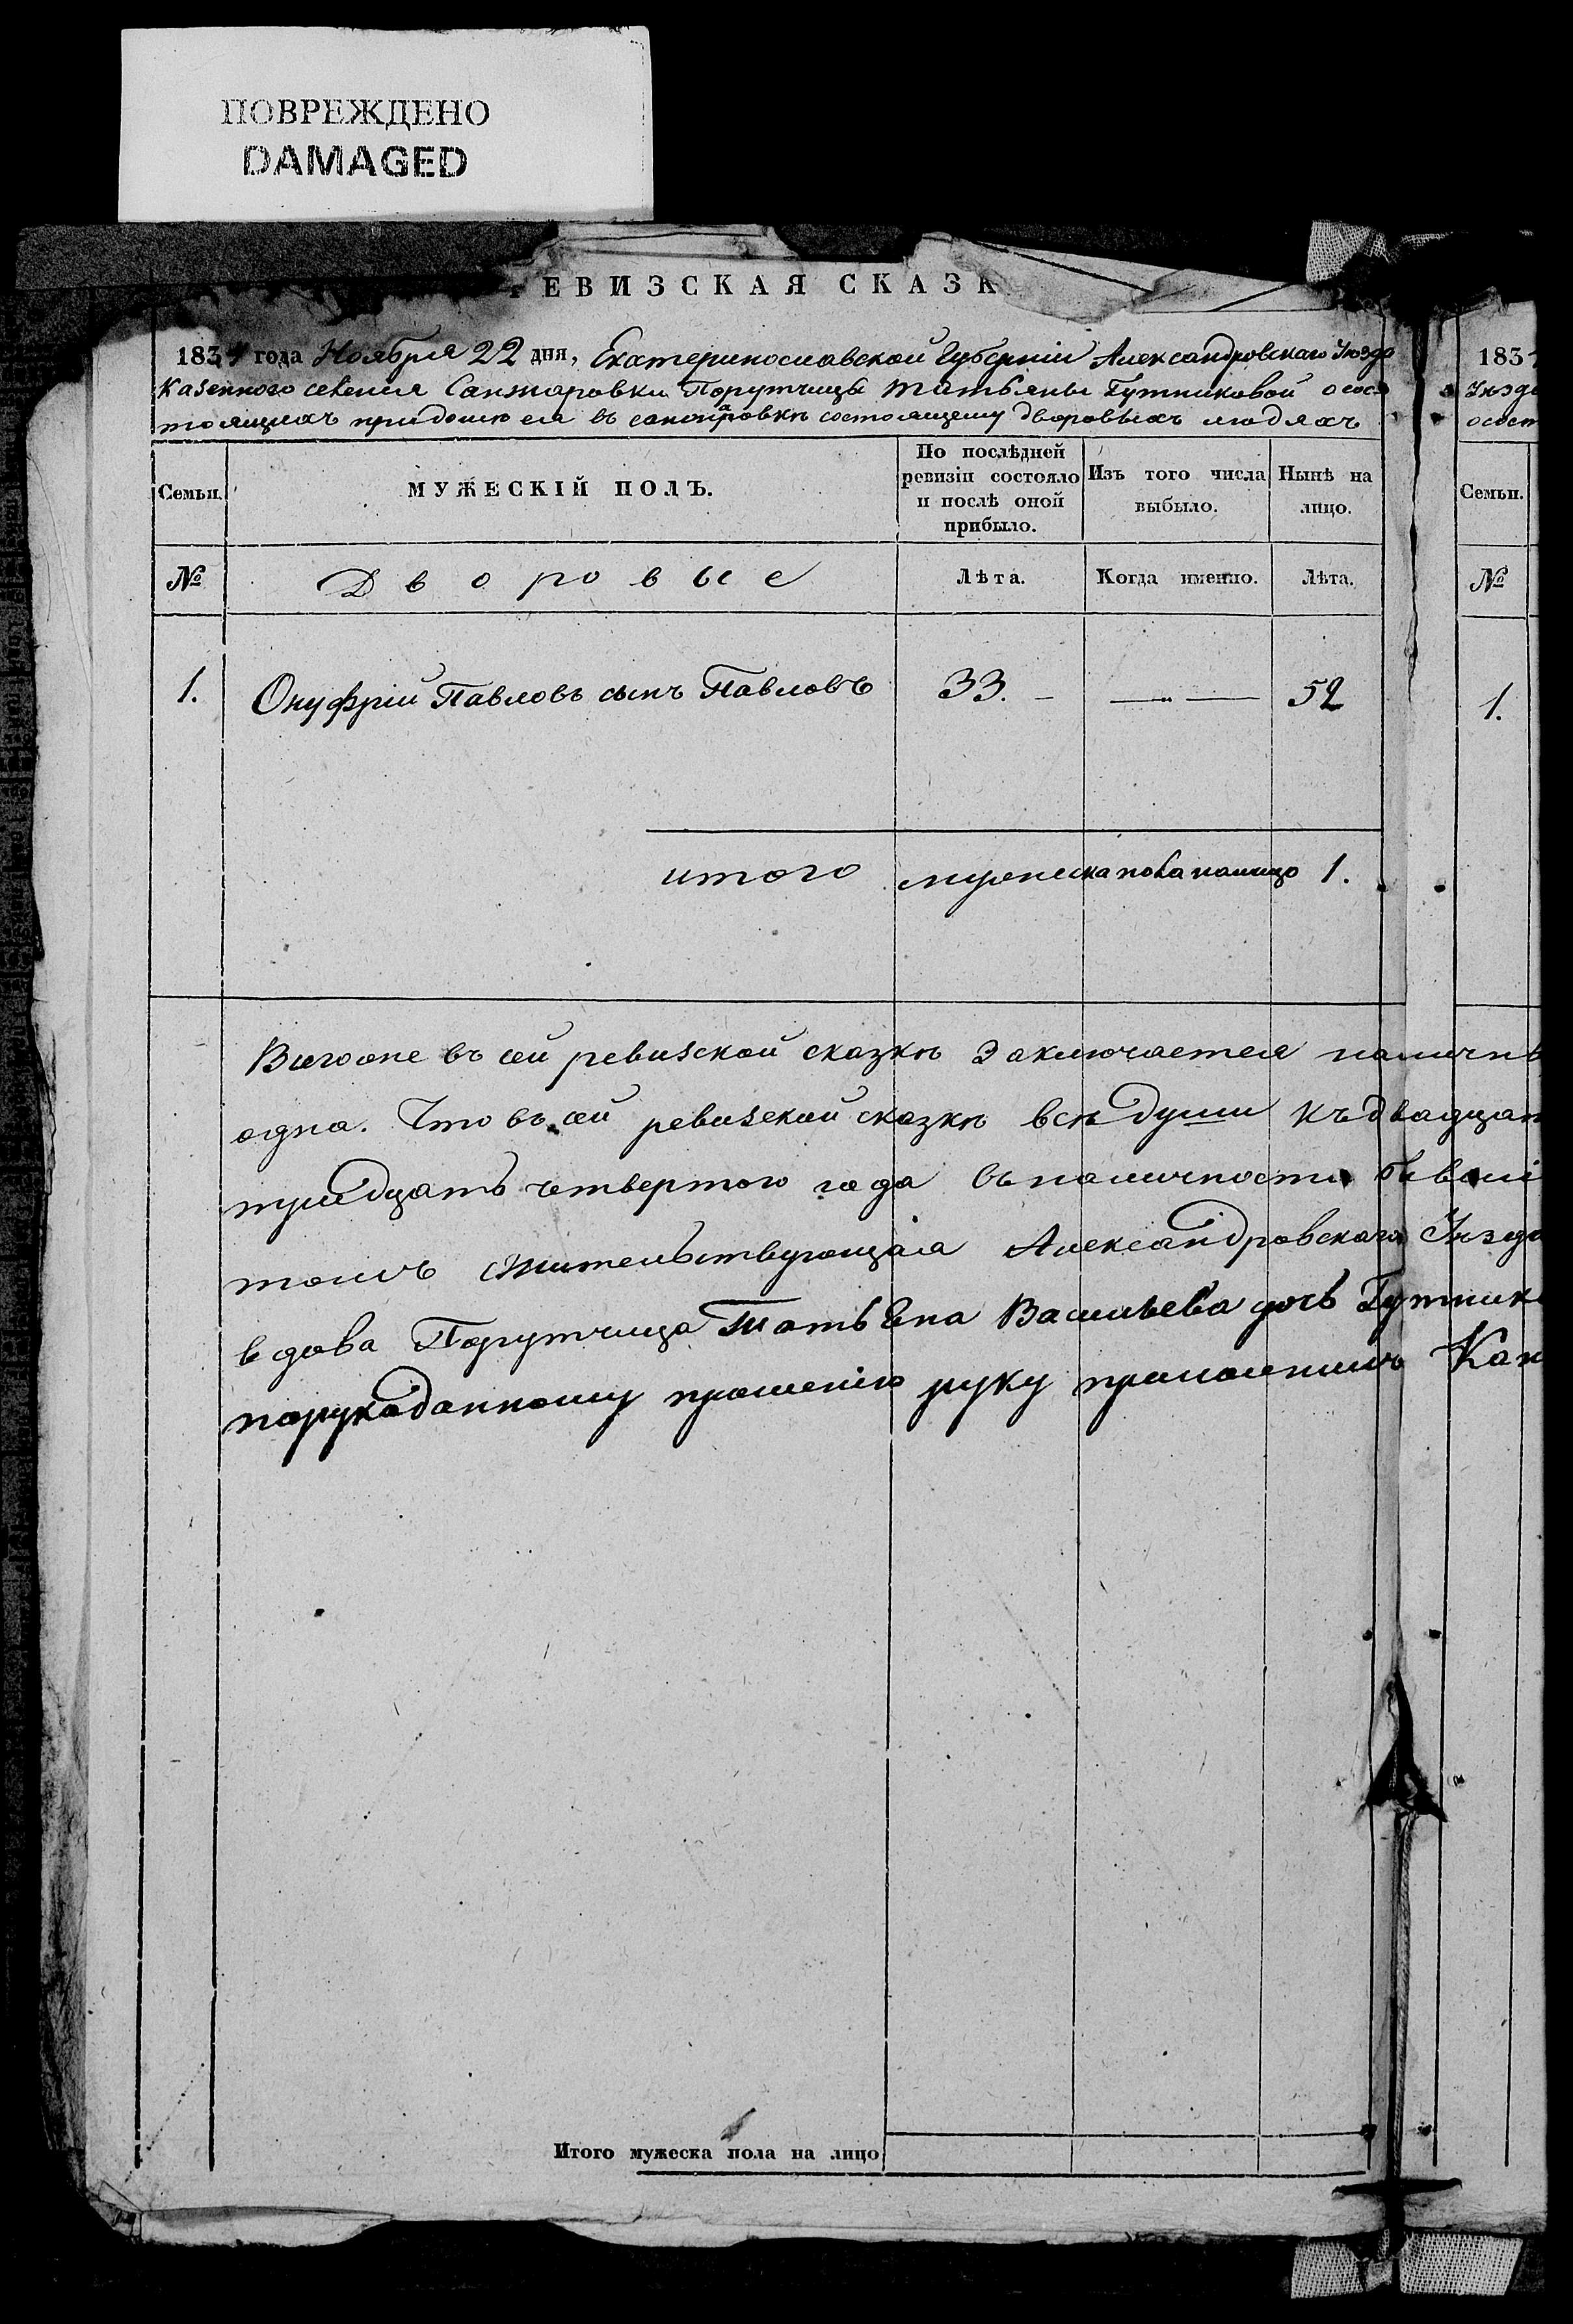 ПОВРЕЖДЕНО
DAMAGED
РЕВИЗСКАЯ СКАЗК
1834 года Ноября 22 дня, Екатеринославской Губерніи Александровскаго Уѣзда
Казенного селенія Санжаровки Порутчицы Татьяны Гутниковой о сос
тоящихъ придомю ея въ санжаровкѣ состоящему дворовыхъ людяхъ
Семьи.
МУЖЕСКІЙ ПОЛЪ.
По послѣдней ревизіи состояло и послѣ оной прибыло.
Изъ того числа выбыло.
Нынѣ на лицо.
№
Дворовые
Лѣта.
Когда именно.
Лѣта.
1. Онуфрій Павловъ сынъ Павловъ 33. — — — 52
итого мужеска пола налицо 1.
въ сей ревизской сказкѣ Заключается наличн
одна. Что въ сей ревизской сказкѣ всѣ души къ двадцат
тридцать четвертого года въ наличности
томъ жительствующая Александровскаго Уѣзда
вдова Порутчица Татьена Васильева дочь Гутник
порукаданному прошенію руку приложилъ Кан
Итого мужеска пола на лицо
183
Уѣзд
осост
Семьи.
№
1.